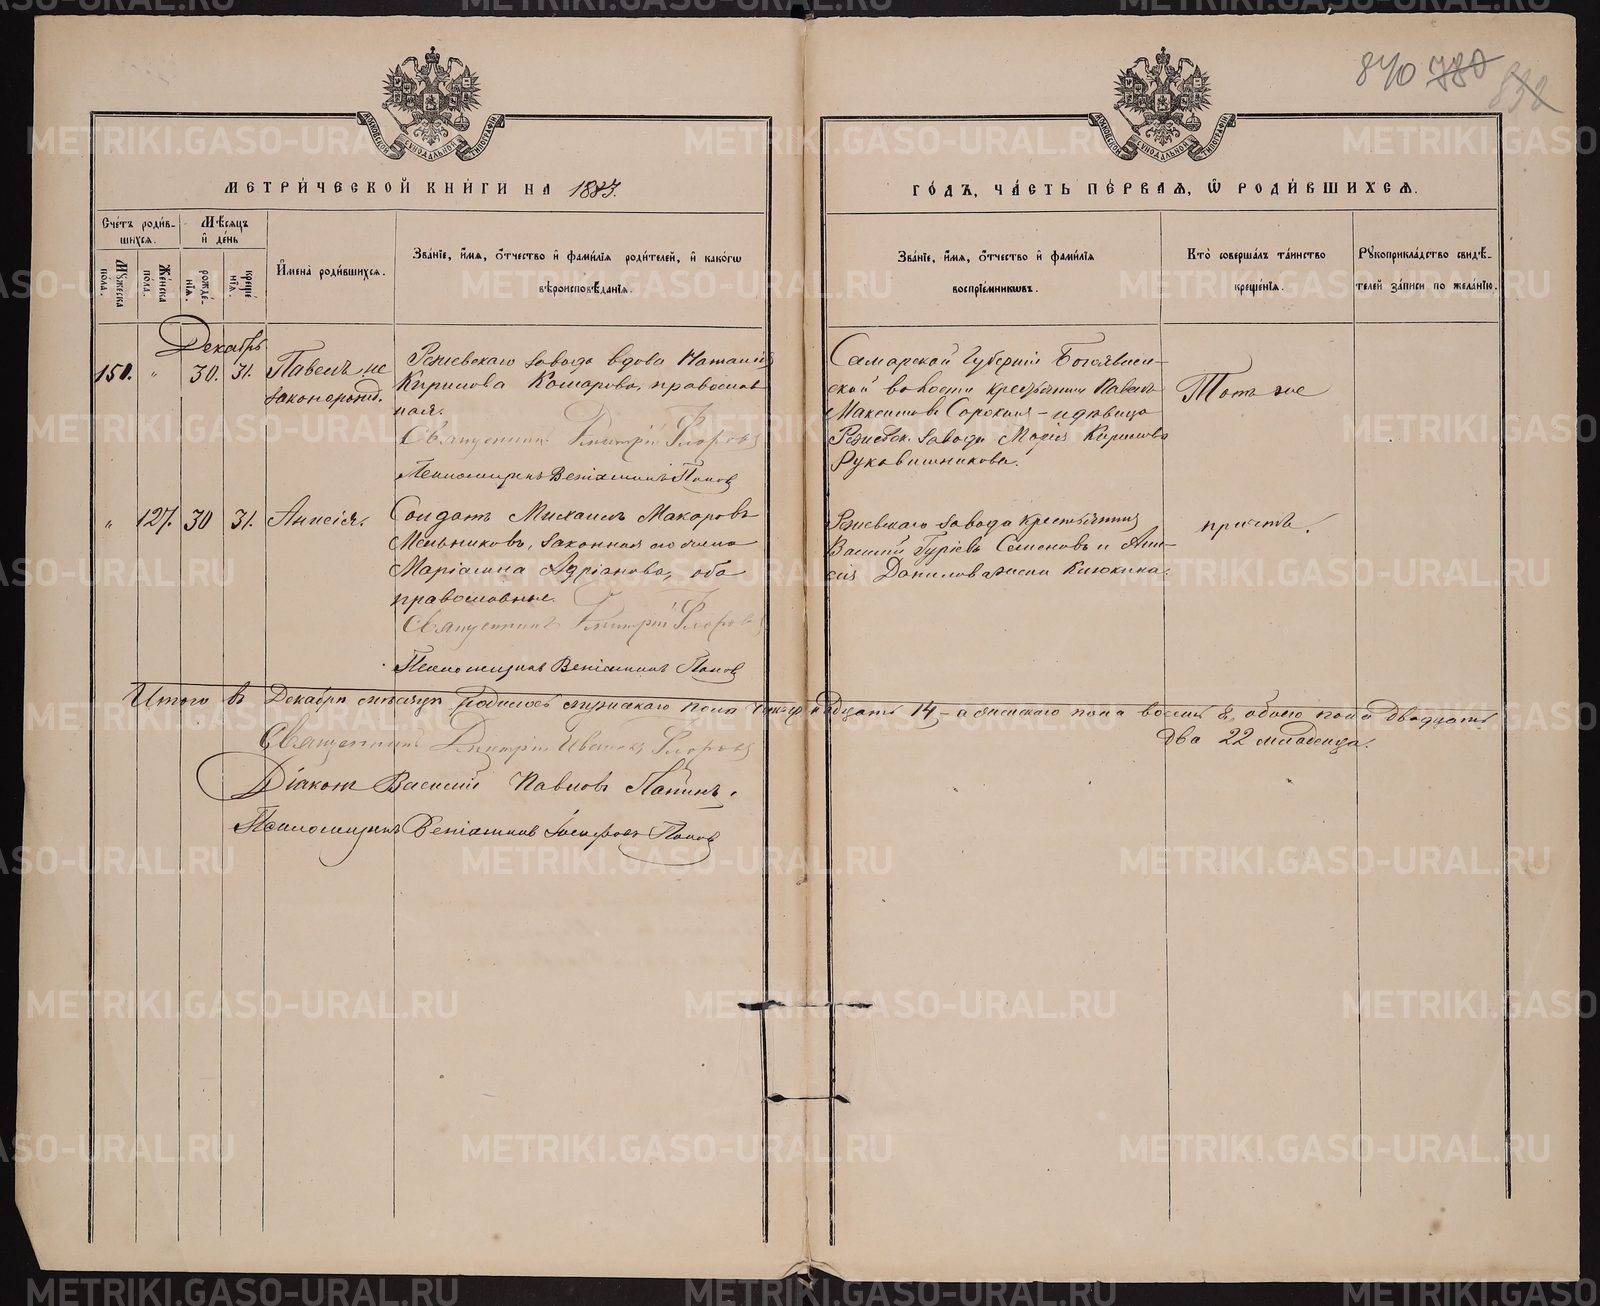 840 780 832
МОСКОВСКОЙ СѴНОДАЛЬНОЙ ТИПОГРАФІИ
МОСКОВСКОЙ СѴНОДАЛЬНОЙ ТИПОГРАФІИ
МЕТРИ́ЧЕСКОЙ КНИ́ГИ НА 1887.
ГО́ДЪ, ЧА́СТЬ ПЕ́РВАЯ, Ѡ РОДИ́ВШИХСЯ.
Сче́тъ роди́в-
шихся.
Мѣ́сяцъ
и҆ де́нь
Му́жеска
пола.
Же́нска
пола.
рожде́-
нїя.
креще́
нїя.
И҆мена̀ роди́вшихся.
Зва́нїе, и҆́мя, о҆́тчество и҆ фами́лїя роди́телей, и҆ како́гѡ
вѣроисповѣ́данїя.
Зва́нїе, и҆́мя, о҆́тчество и҆ фами́лїя
воспрїе́мникѡвъ.
Кто̀ соверша́лъ та́инство
креще́нїя.
Рꙋкоприкла́дство свидѣ́-
телей за́писи по жела́нїю.
Декабрь
150. " 30. 31. Павелъ, не
законорожд.
Режевскаго завода вдова Наталия
Кирилова Комарова, православ
ная.
Священникъ Димитрій Флоровъ
Псаломщикъ Веніаминъ Попов
Самарской Губерніи Богоявлен-
ской волости крестьянин Павелъ
Максимовъ Сорокин - и девица
Режевск. завода Марія Кирилова
Рукавишникова.
Тотъ же
" 127. 30 31. Анисія.
Солдатъ Михаилъ Макаровъ
Мельниковъ, законная его жена
Маріамна Адріанова, оба
православные.
Священникъ Димитрій Флоровъ
Псаломщикъ Веніаминъ Попов
Режевскаго завода крестьянин
Василій Гурьевъ Семеновъ и Ани-
сія Данилова Клюкина.
причтъ.
Итого въ Декабре месяце родилось мужскаго пола четырнадцать 14 - а женскаго пола восемь 8, обоего пола двадцать
два 22 младенца.
Священникъ Димитрій Ивановъ Флоровъ
Діаконъ Василій Павловъ Лапинъ.
Псаломщикъ Веніамин Іосифовъ Попов
METRIKI.GASO-URAL.RU